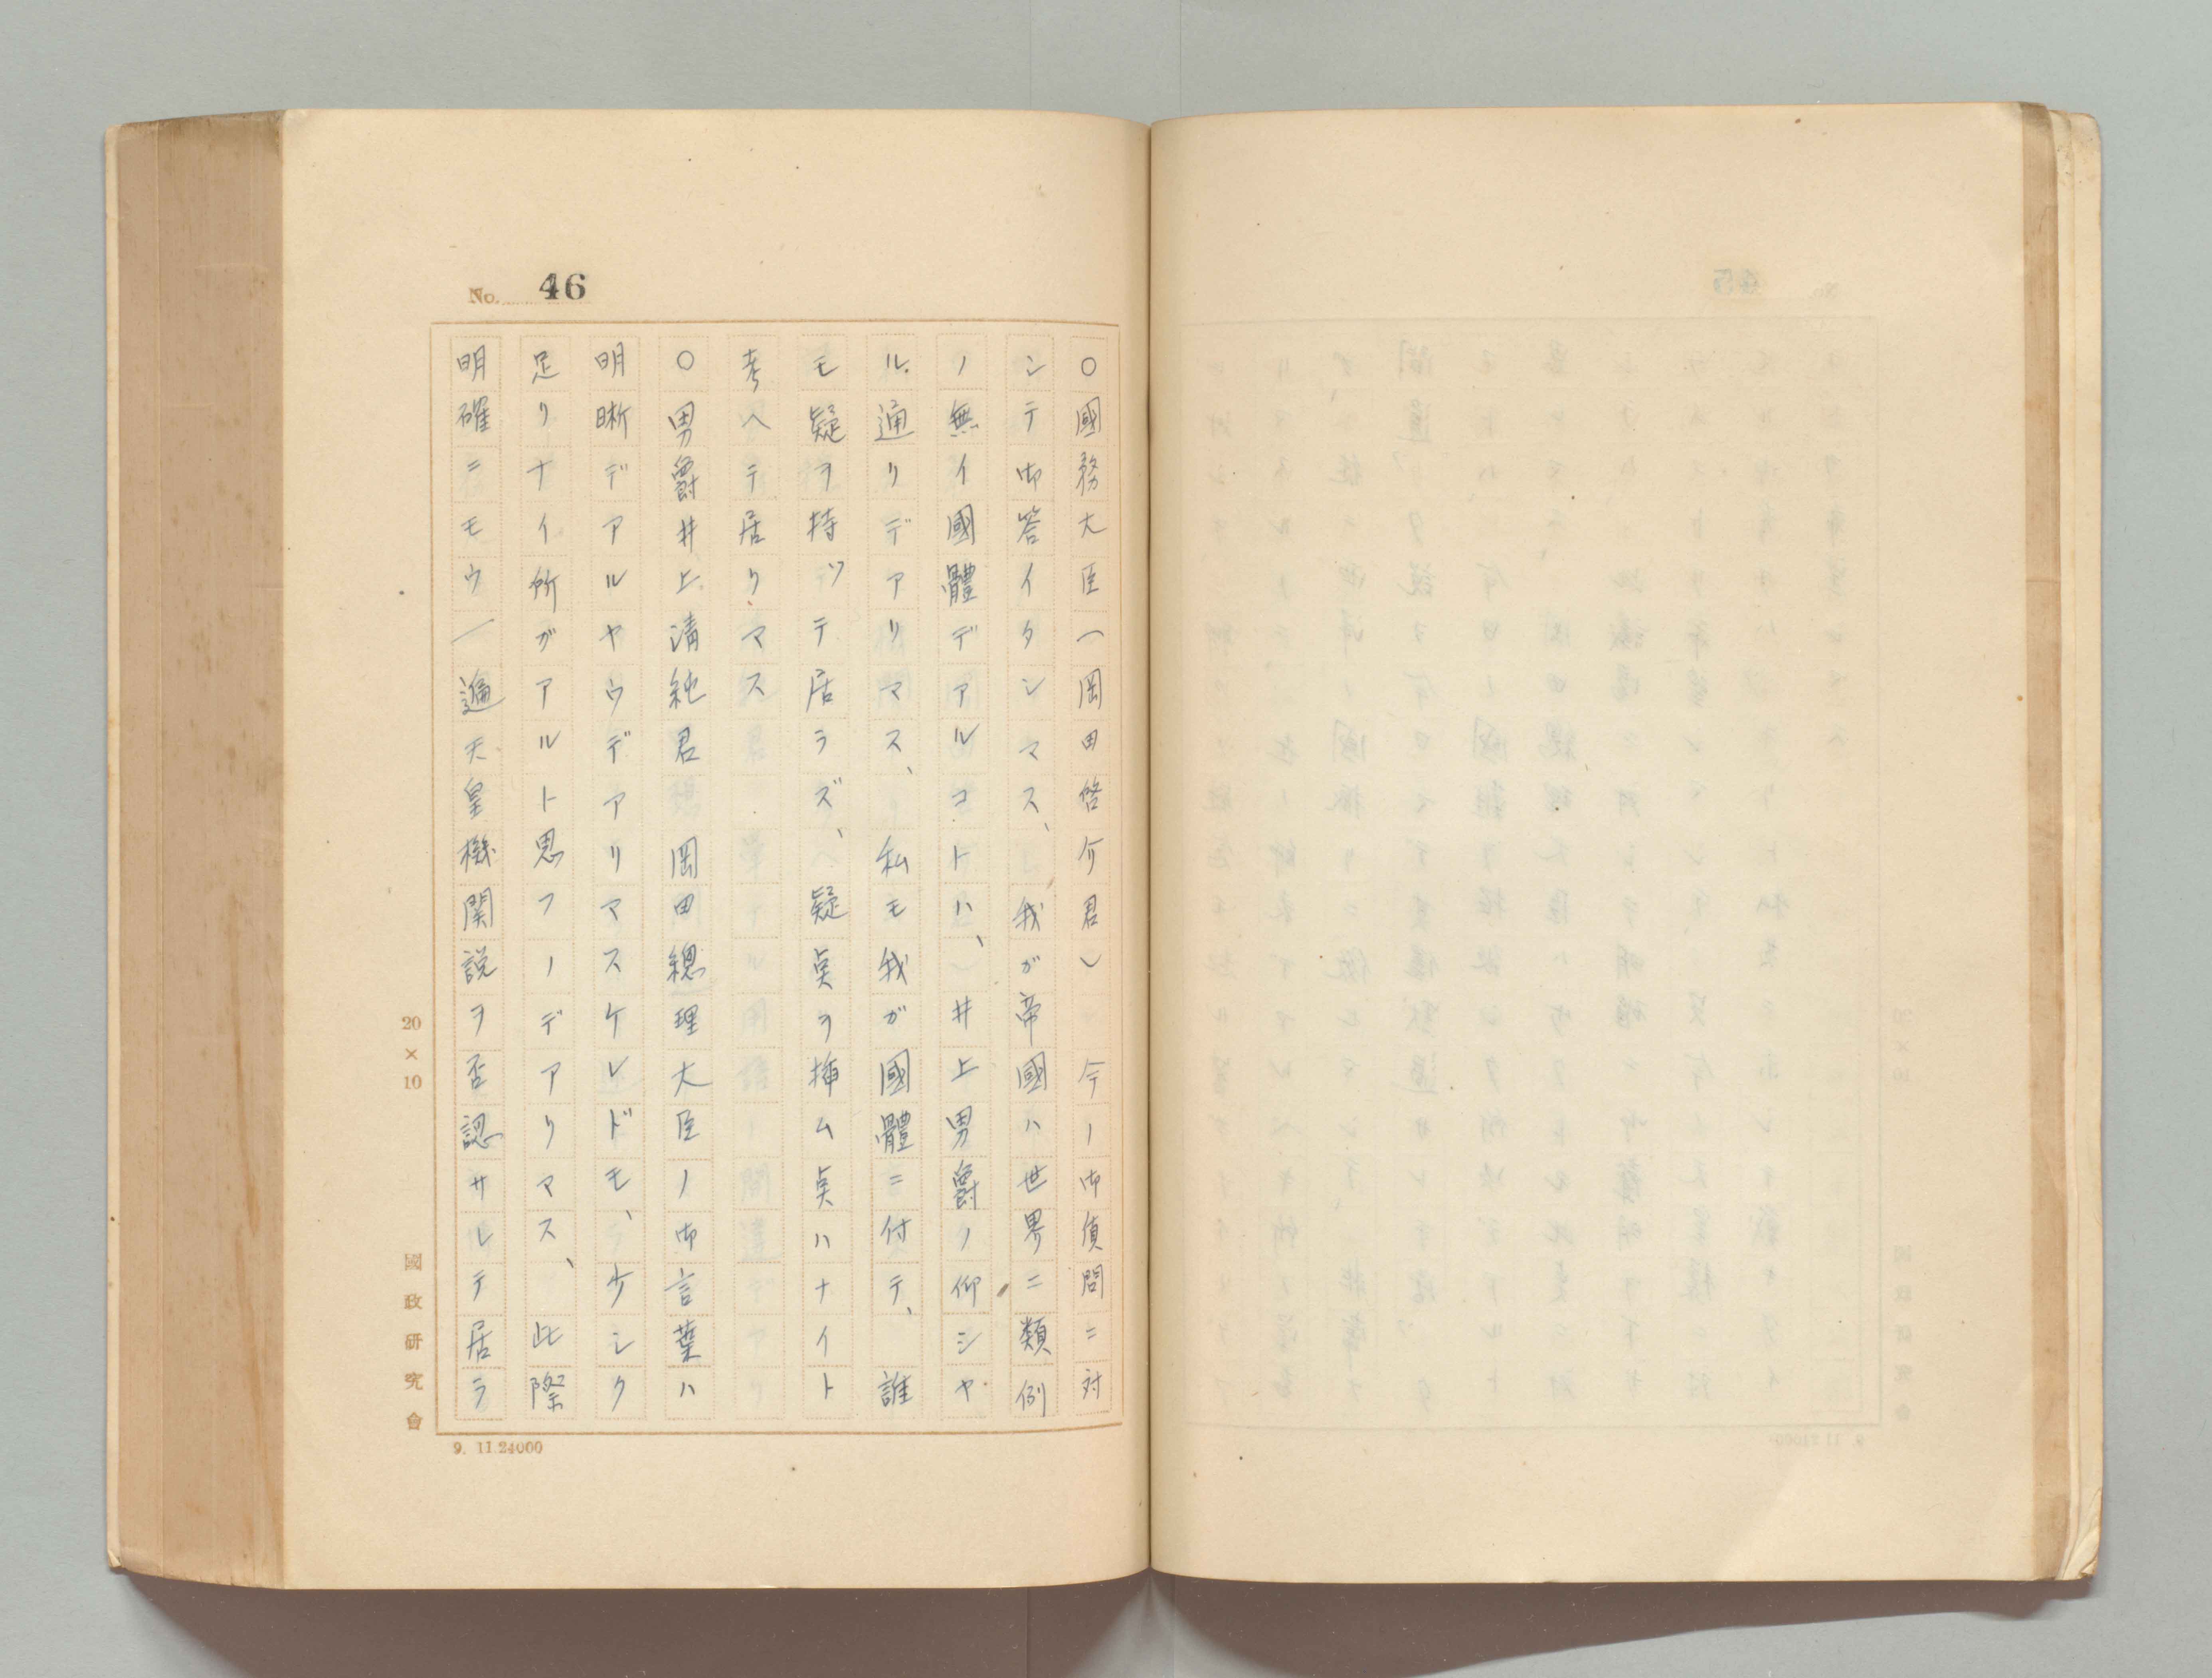 No. 46
〇國務大臣(岡田啓介君) 今ノ御質問ニ対
シテ御答イタシマス、我ガ帝國ハ世界ニ類例
ノ無イ國體デアルコトハ、井上男爵ノ仰シヤ
ル通リデアリマス、私モ我ガ國體ニ付テ、誰
モ疑ヲ持ツテ居ラズ、疑点ヲ挿ム点ハナイト
考ヘテ居リマス
〇男爵井上清純君 岡田總理大臣ノ御言葉ハ
明晰デアルヤウデアリマスケレドモ、少シク
足リナイ所ガアルト思フノデアリマス、此際
明確ニモウ一遍天皇機関説ヲ否認サレテ居ラ
20×10
國政研究會
9. 11.24000